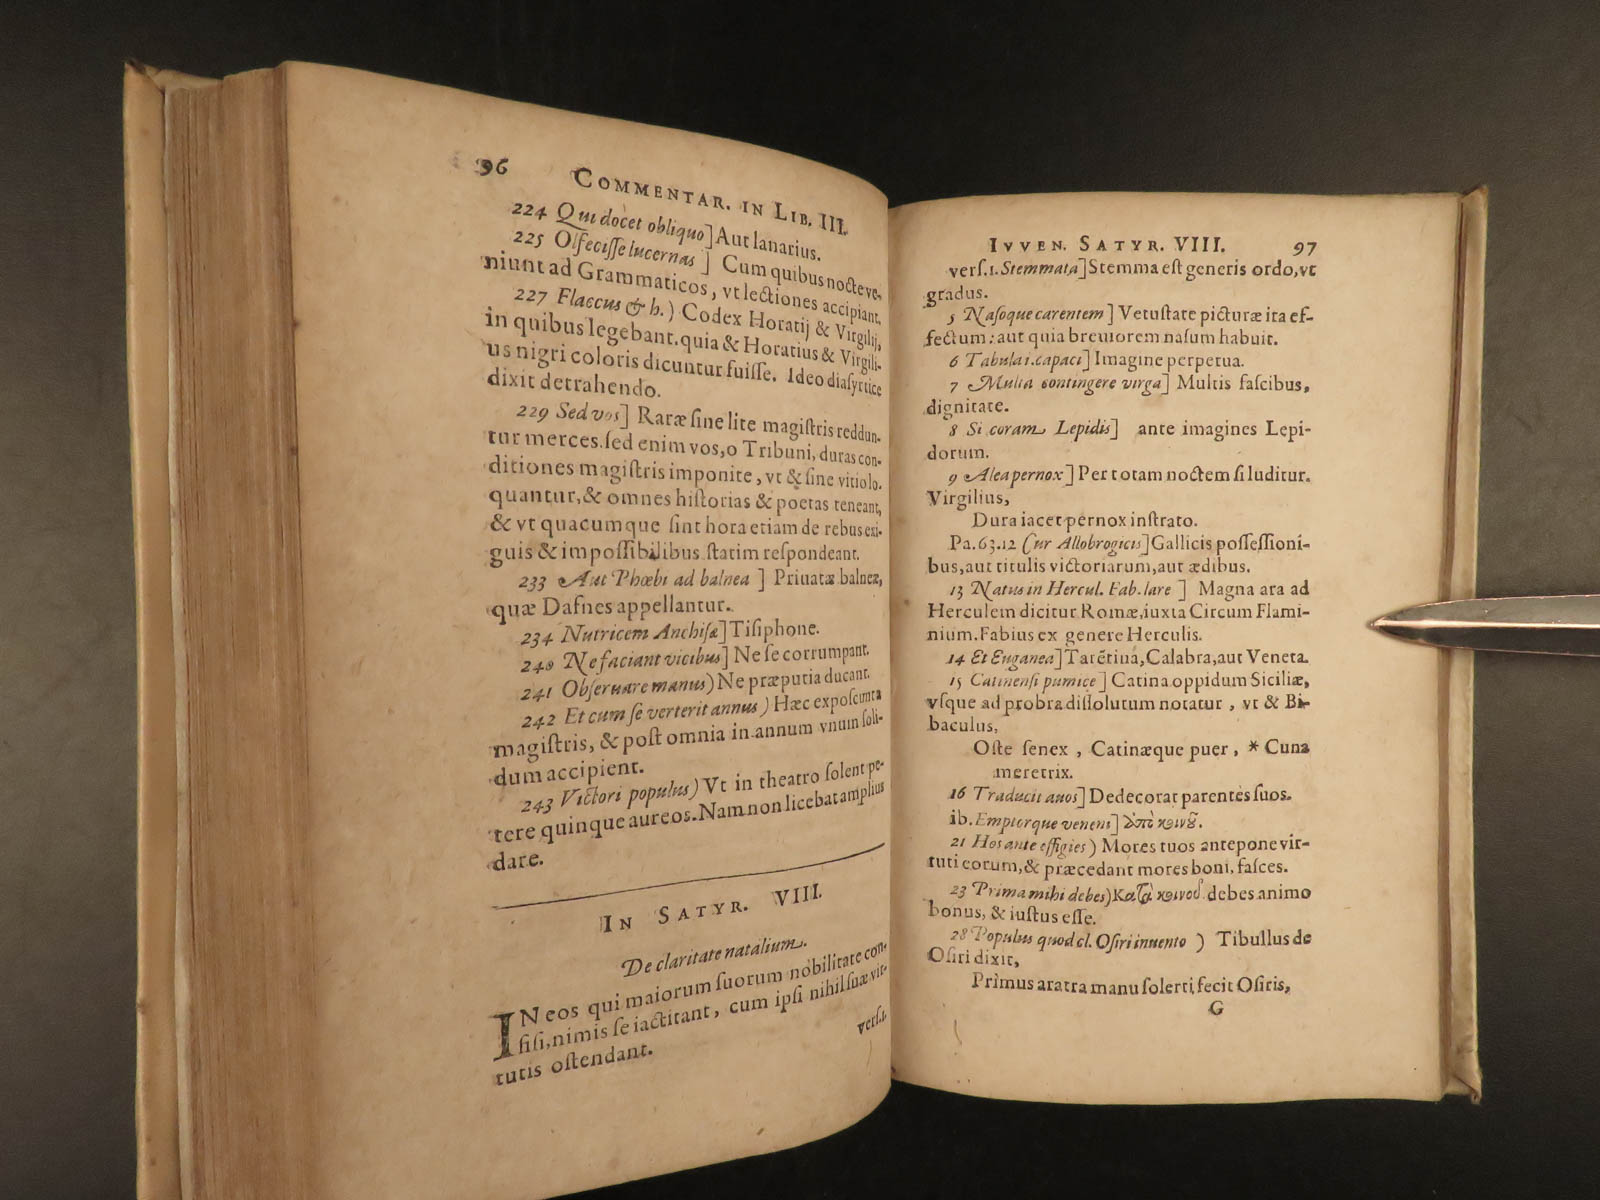 96 COMMENTAR. IN LIB. III.
224 Qui docet obliquo] Aut lanarius.
225 Olfecisse lucernas ] Cum quibus nocte ve-
niunt ad Grammaticos, vt lectiones accipiant.
227 Flaccus & h.) Codex Horatij & Virgilij,
in quibus legebant. quia & Horatius & Virgili-
us nigri coloris dicuntur fuisse. Ideo diasyrtice
dixit detrahendo.
229 Sed vos] Raræ sine lite magistris reddun-
tur merces. sed enim vos, o Tribuni, duras con-
ditiones magistris imponite, vt & sine vitio lo.
quantur, & omnes historias & poetas teneant,
& vt quacumque sint hora etiam de rebus exi-
guis & impossibilibus statim respondeant.
233 Aut Phœbi ad balnea ] Priuatæ balneæ,
quæ Dafnes appellantur.
234 Nutricem Anchisæ] Tisiphone.
240 Ne faciant vicibus] Ne se corrumpant.
241 Obseruare manus) Ne præputia ducant.
242 Et cum se verterit annus ) Hæc exposcunta
magistris, & post omnia in annum vnum soli-
dum accipient.
243 Victori populus) Vt in theatro solent pe-
tere quinque aureos. Nam non licebat amplius
dare.
IN SATYR. VIII.
De claritate natalium.
IN eos qui maiorum suorum nobilitate con-
fisi, nimis se iactitant, cum ipsi nihil suæ vir-
tutis ostendant.
vers.1.
IVVEN. SATYR. VIII. 97
vers.1. Stemmata] Stemma est generis ordo, vt
gradus.
5 Nasoque carentem ] Vetustate picturæ ita ef-
fectum: aut quia breuiorem nasum habuit.
6 Tabula i. capaci] Imagine perpetua.
7 Multa contingere virga] Multis fascibus,
dignitate.
8 Si coram Lepidis] ante imagines Lepi-
dorum.
9 Alea pernox] Per totam noctem si luditur.
Virgilius,
Dura iacet pernox instrato.
Pa.63.12 Cur Allobrogicis] Gallicis possessioni-
bus, aut titulis victoriarum, aut ædibus.
13 Natus in Hercul. Fab. lare ] Magna ara ad
Herculem dicitur Romæ, iuxta Circum Flami-
nium. Fabius ex genere Herculis.
14 Et Euganea] Tarētina, Calabra, aut Veneta.
15 Catinensi pumice] Catina oppidum Siciliæ,
vsque ad probra dissolutum notatur, vt & Bi-
baculus,
Oste senex, Catinæque puer, * Cuna
meretrix.
16 Traducit auos] Dedecorat parentes suos.
ib. Emptorque veneni] ἀπὸ κοινοῦ.
21 Hos ante effigies) Mores tuos antepone vir-
tuti eorum, & præcedant mores boni, fasces.
23 Prima mihi debes) Κατὰ κοινοῦ debes animo
bonus, & iustus esse.
28 Populus quod cl. Osiri inuento ) Tibullus de
Osiri dixit,
Primus aratra manu solerti fecit Osiris,
G